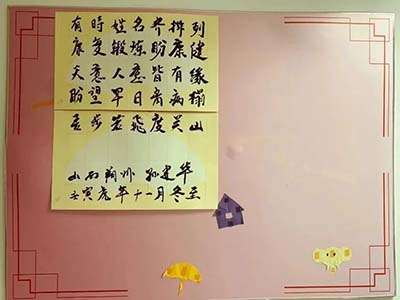 有時姓名齐排列
康复锻炼盼康健
天意人意皆有緣
盼望早日离病榻
吾步若飛度关山
山西朔州 孙建华
壬寅虎年十一月冬至